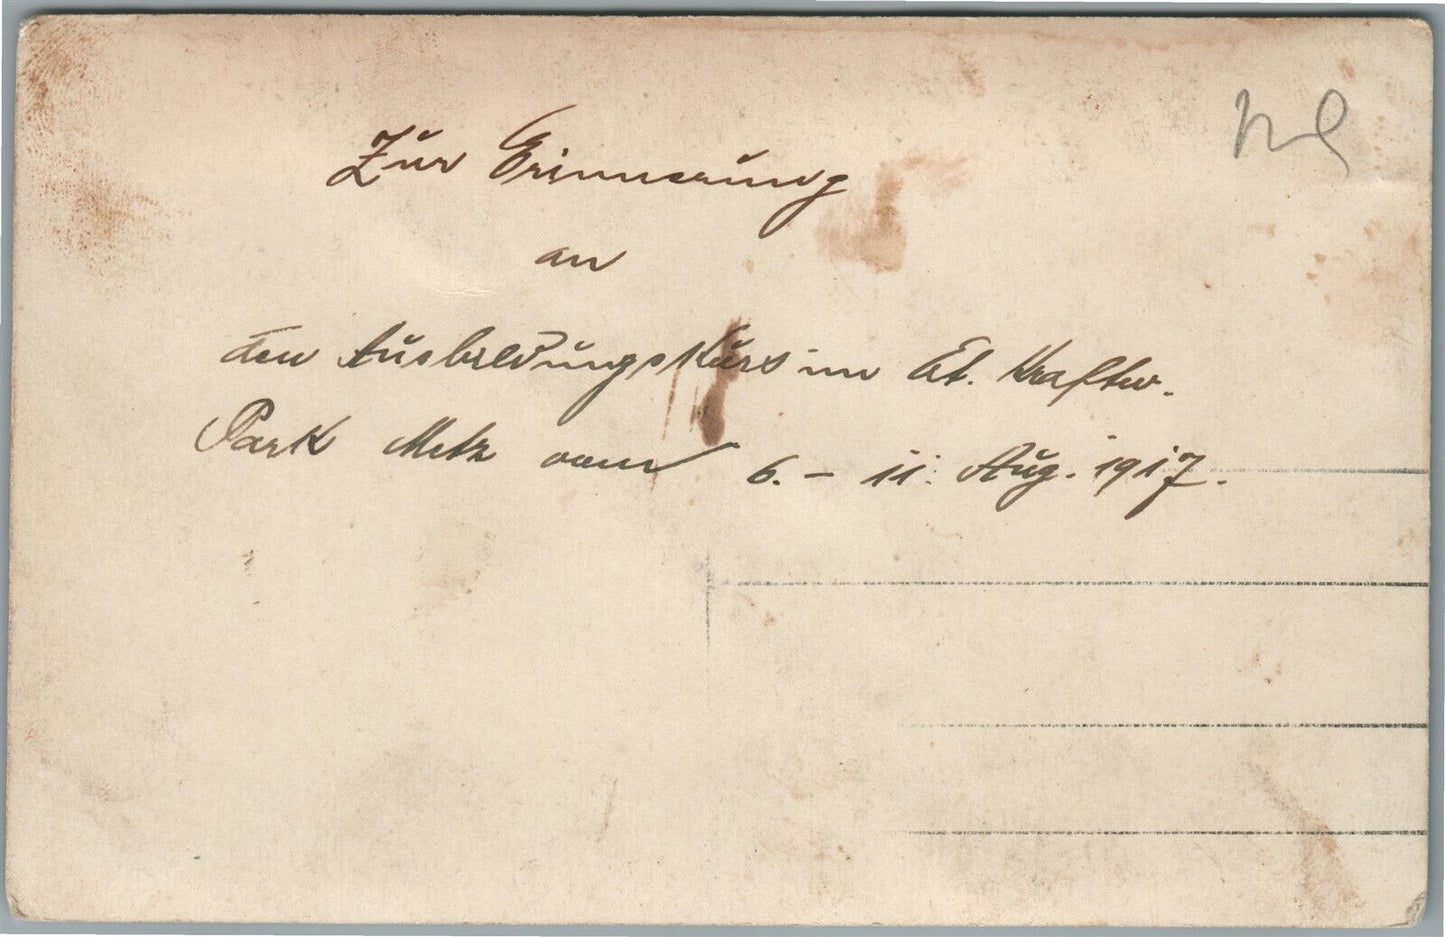 Zur Erinnerung
an
den Ausbildungskurs im Et. Kraftw.
Park Metz vom 6. – 11. Aug. 1917.